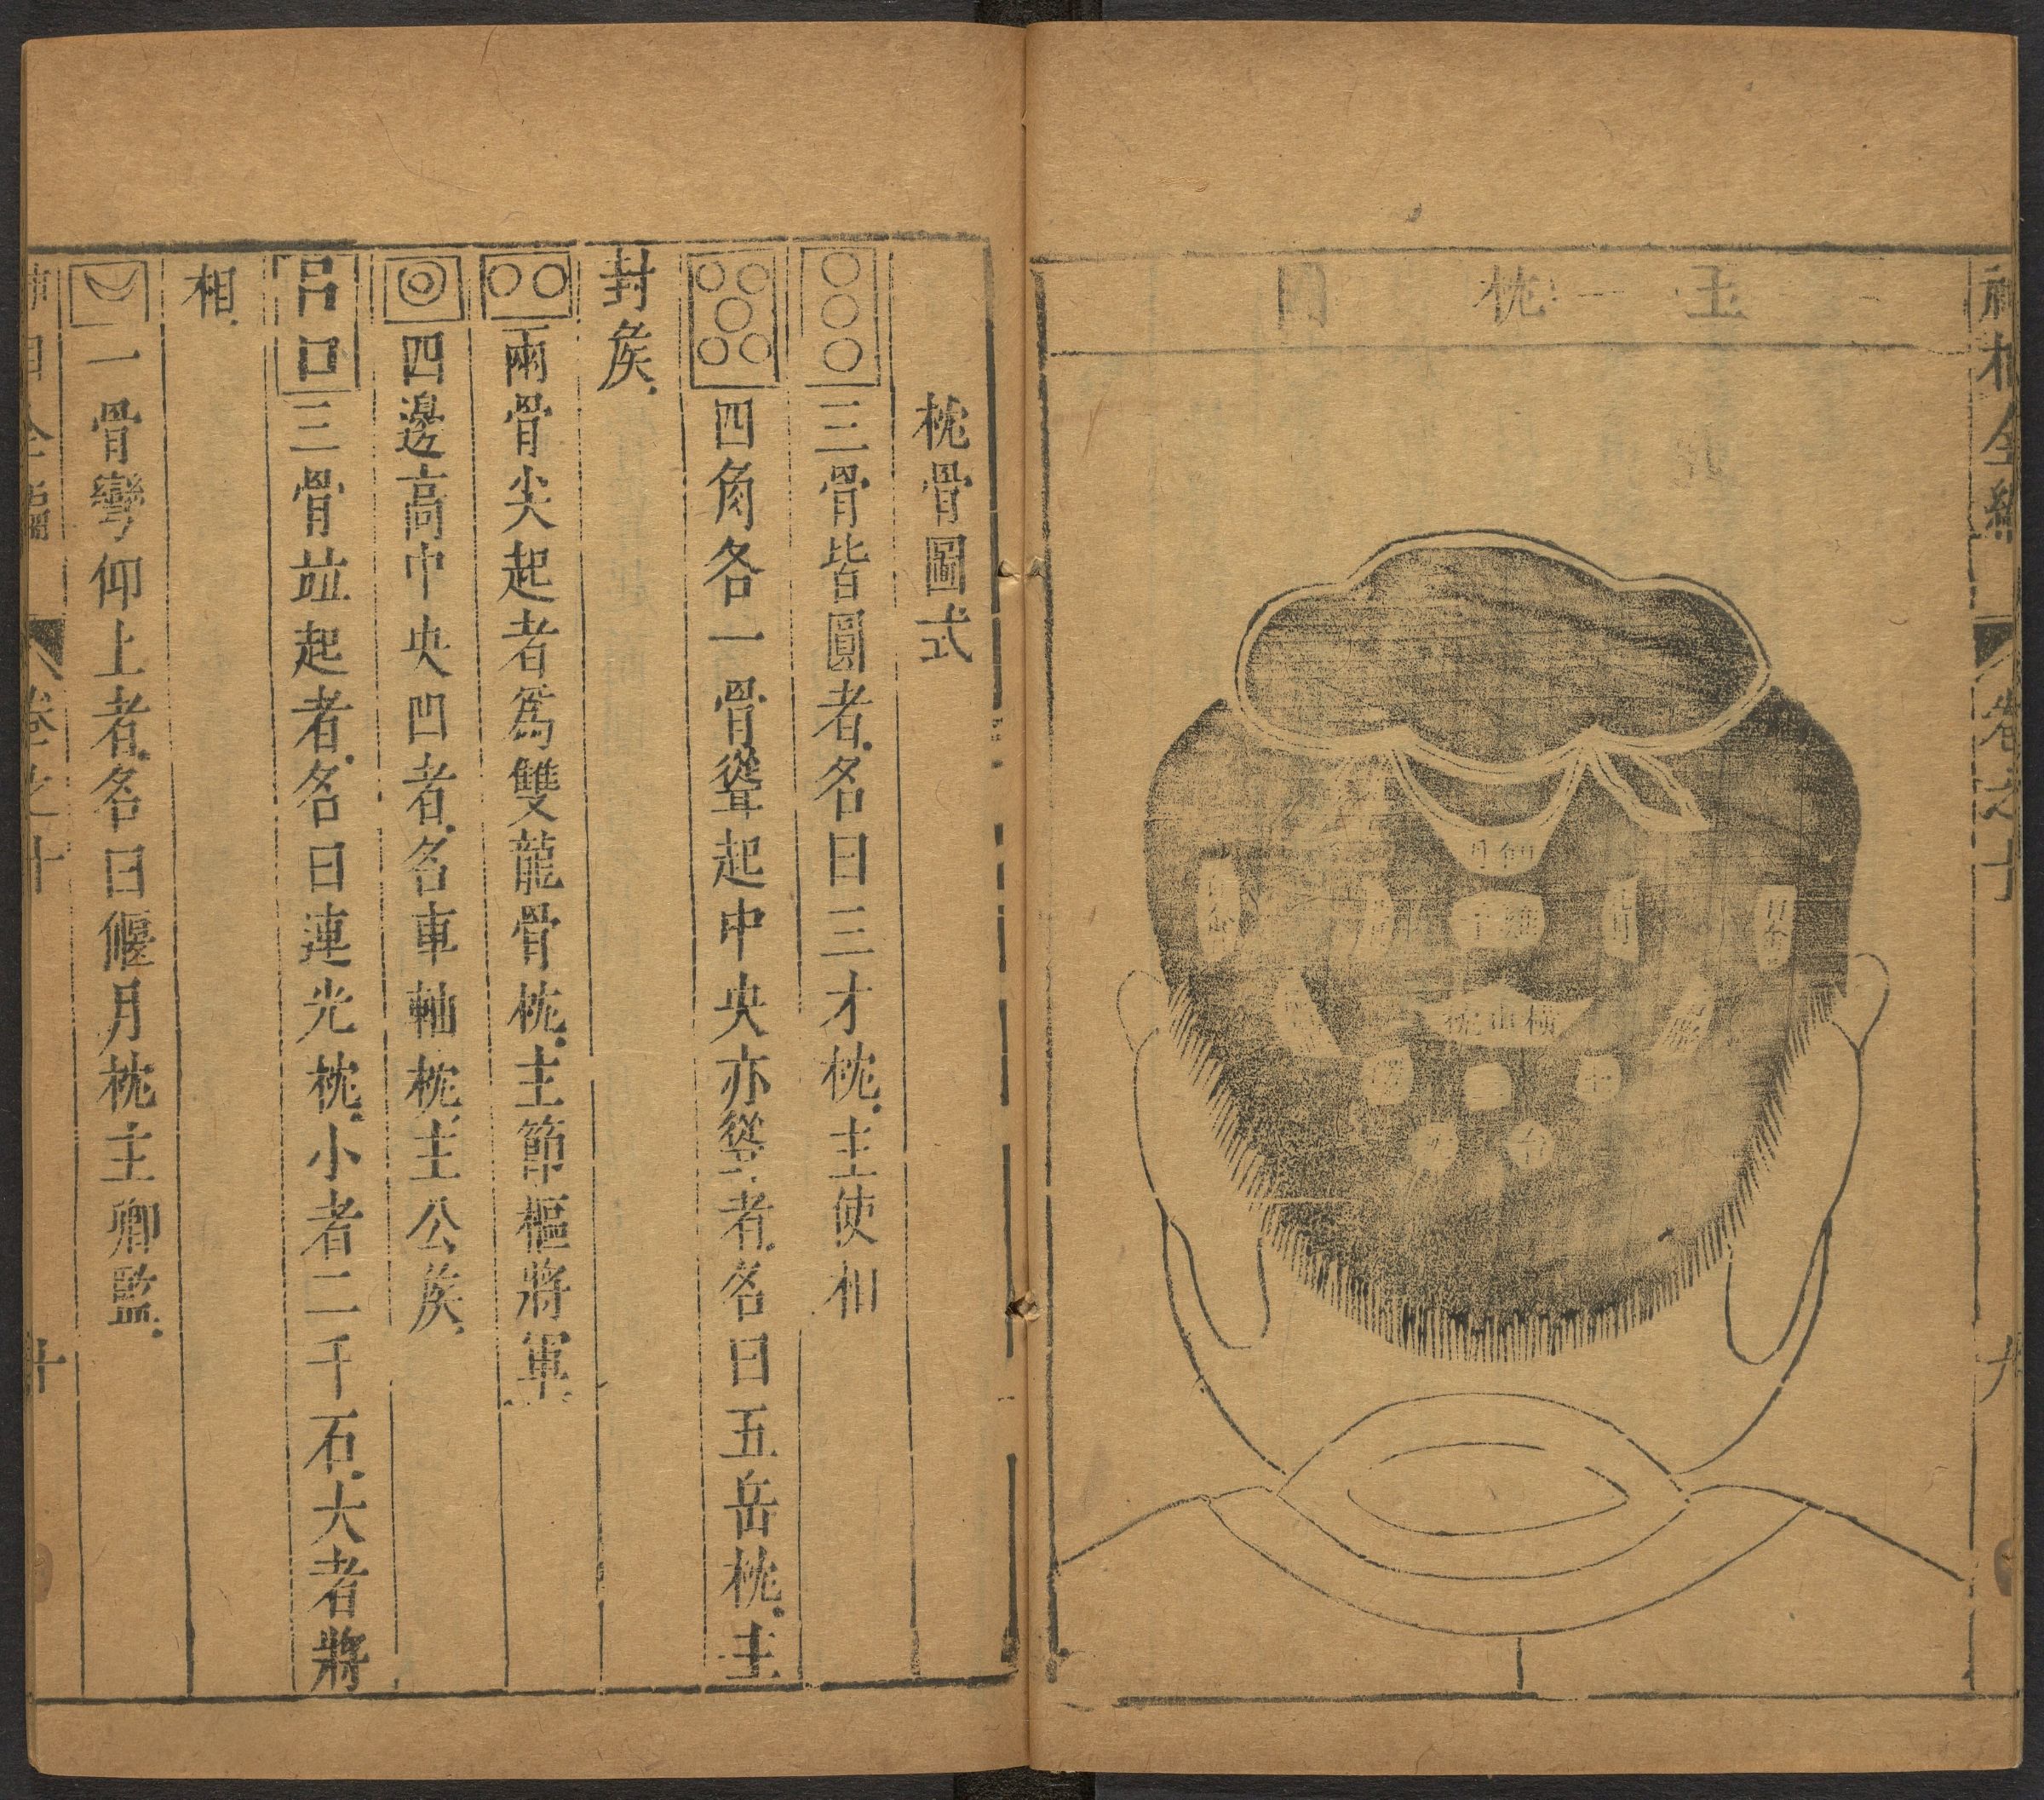 神相全編
卷之十
九
玉枕
枕骨圖式
三骨皆圓者名曰三才枕主使相
四角各一骨聳起中央亦聳者名曰五岳枕主
封侯
兩骨尖起者爲雙龍骨枕主節樞將軍
四邊高中央凹者名車軸枕主公侯
三骨竝起者名曰連光枕小者二千石大者將
相
一骨彎仰上者名曰偃月枕主卿監
神相全編
卷之十
十
横山枕
台